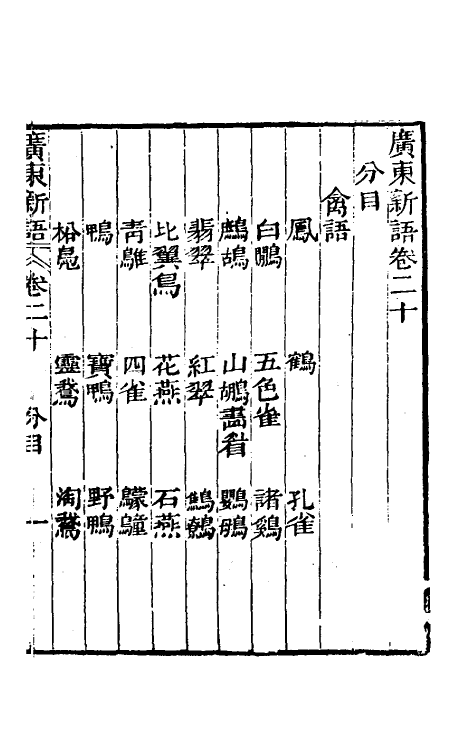 廣東新語卷二十
分目
禽語
鳳 鶴 孔雀
白鷳 五色雀 諸鷄
鷓鴣 山鷓畵眉 鸚鵡
翡翠 紅翠 鷦鷯
比翼鳥 花燕 石燕
靑鶵 四雀 艨艟
鴨 寶鴨 野鴨
靈鶖 淘鶖
廣東新語 卷二十 分目 一